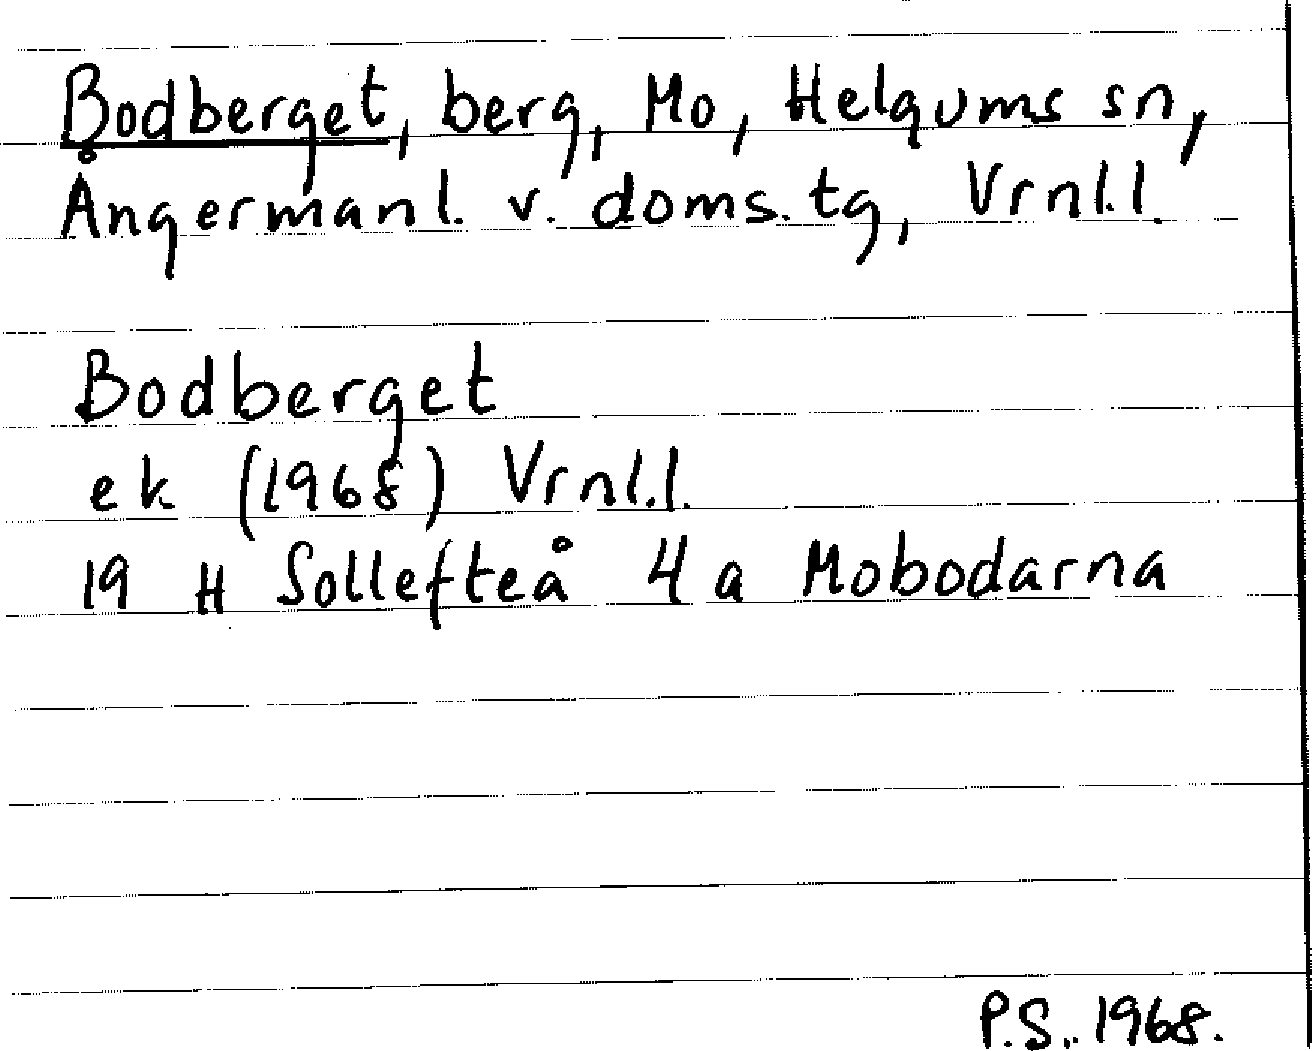 Bodberget, berg, Mo, Helgums sn,
Ångermanl. v. doms. tg, Vrnl.l.
Bodberget
ek (1968) Vrnl.l.
19 H Sollefteå 4 a Mobodarna
P.S. 1968.